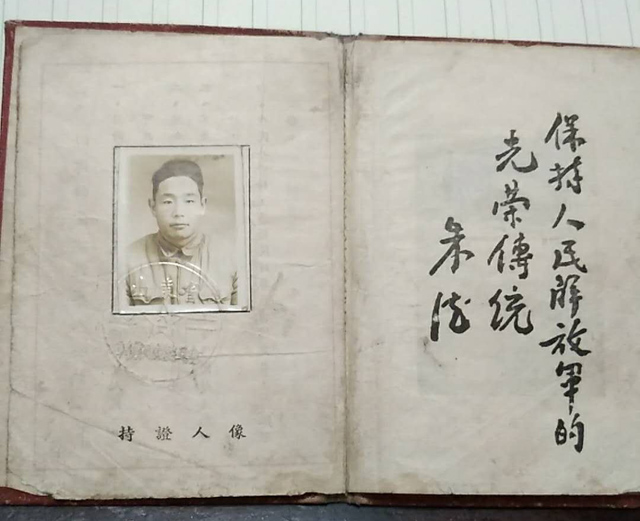 保持人民解放军的
光荣傳统
朱德
像人證持